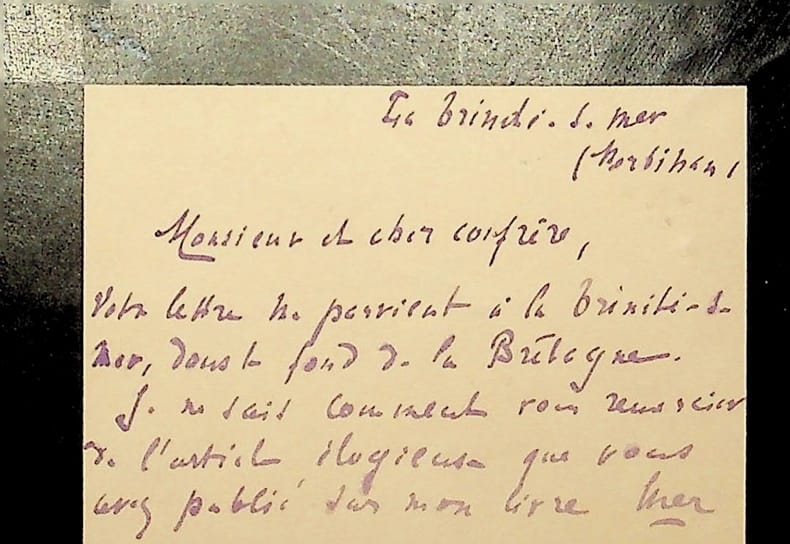 La Trinité-s-mer
(Morbihan)
Monsieur et cher confrère,
Votre lettre me parvient à la Trinité-s-
mer, dans le fond de la Bretagne.
Je ne sais comment vous remercier
de l'article élogieux que vous
avez publié sur mon livre Mer